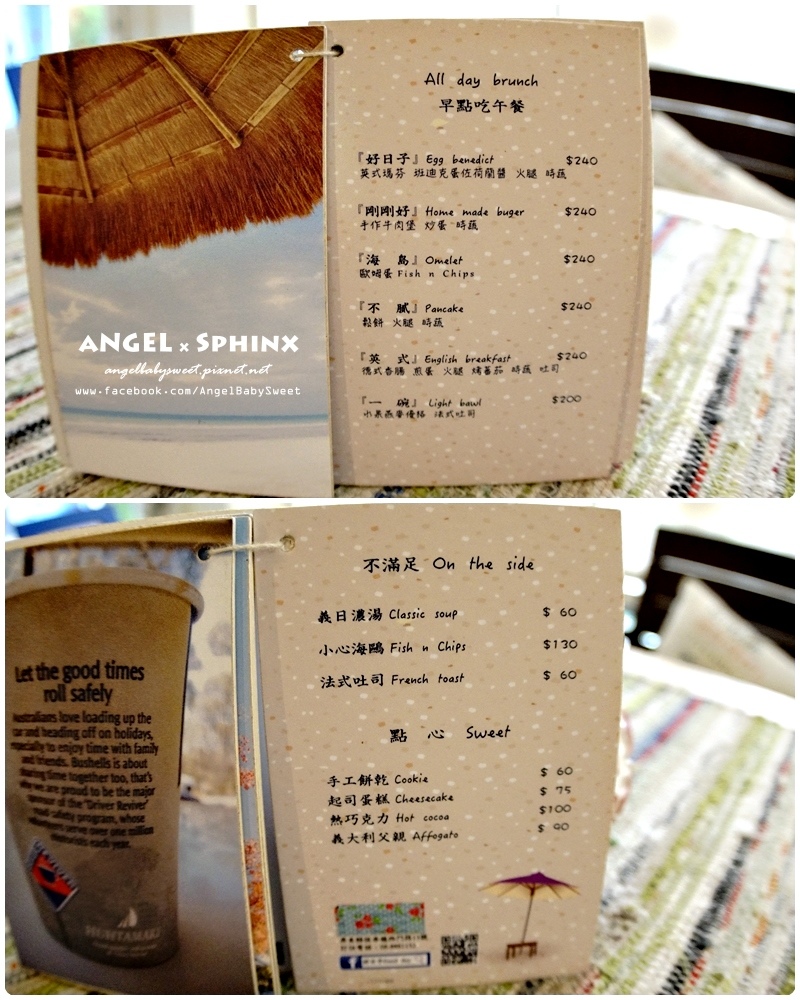 All day brunch
早點吃午餐
『好日子』Egg benedict $240
英式瑪芬 班迪克蛋佐荷蘭醬 火腿 時蔬
『剛剛好』Home made buger $240
手作牛肉堡 炒蛋 時蔬
『海 島』Omelet $240
歐姆蛋 Fish n Chips
『不 膩』Pancake $240
鬆餅 火腿 時蔬
『英 式』English breakfast $240
德式香腸 煎蛋 火腿 烤蕃茄 時蔬 吐司
『一 碗』Light bawl $200
水果燕麥優格 法式吐司
ANGEL x SPHINX
angelbabysweet.pixnet.net
www.facebook.com/AngelBabySweet
不滿足 On the side
義日濃湯 Classic soup $ 60
小心海鷗 Fish n Chips $130
法式吐司 French toast $ 60
點 心 Sweet
手工餅乾 Cookie $ 60
起司蛋糕 Cheesecake $ 75
熱巧克力 Hot cocoa $100
義大利父親 Affogato $ 90
Let the good times
roll safely
Australians love loading up the
car and heading off on holidays,
especially to enjoy time with family
and friends. Bushells is about
sharing time together too, that's
why we are proud to be the major
sponsor of the 'Driver Reviver'
road safety program, whose
volunteers serve over one million
motorists each year.
HUHTAMAKI